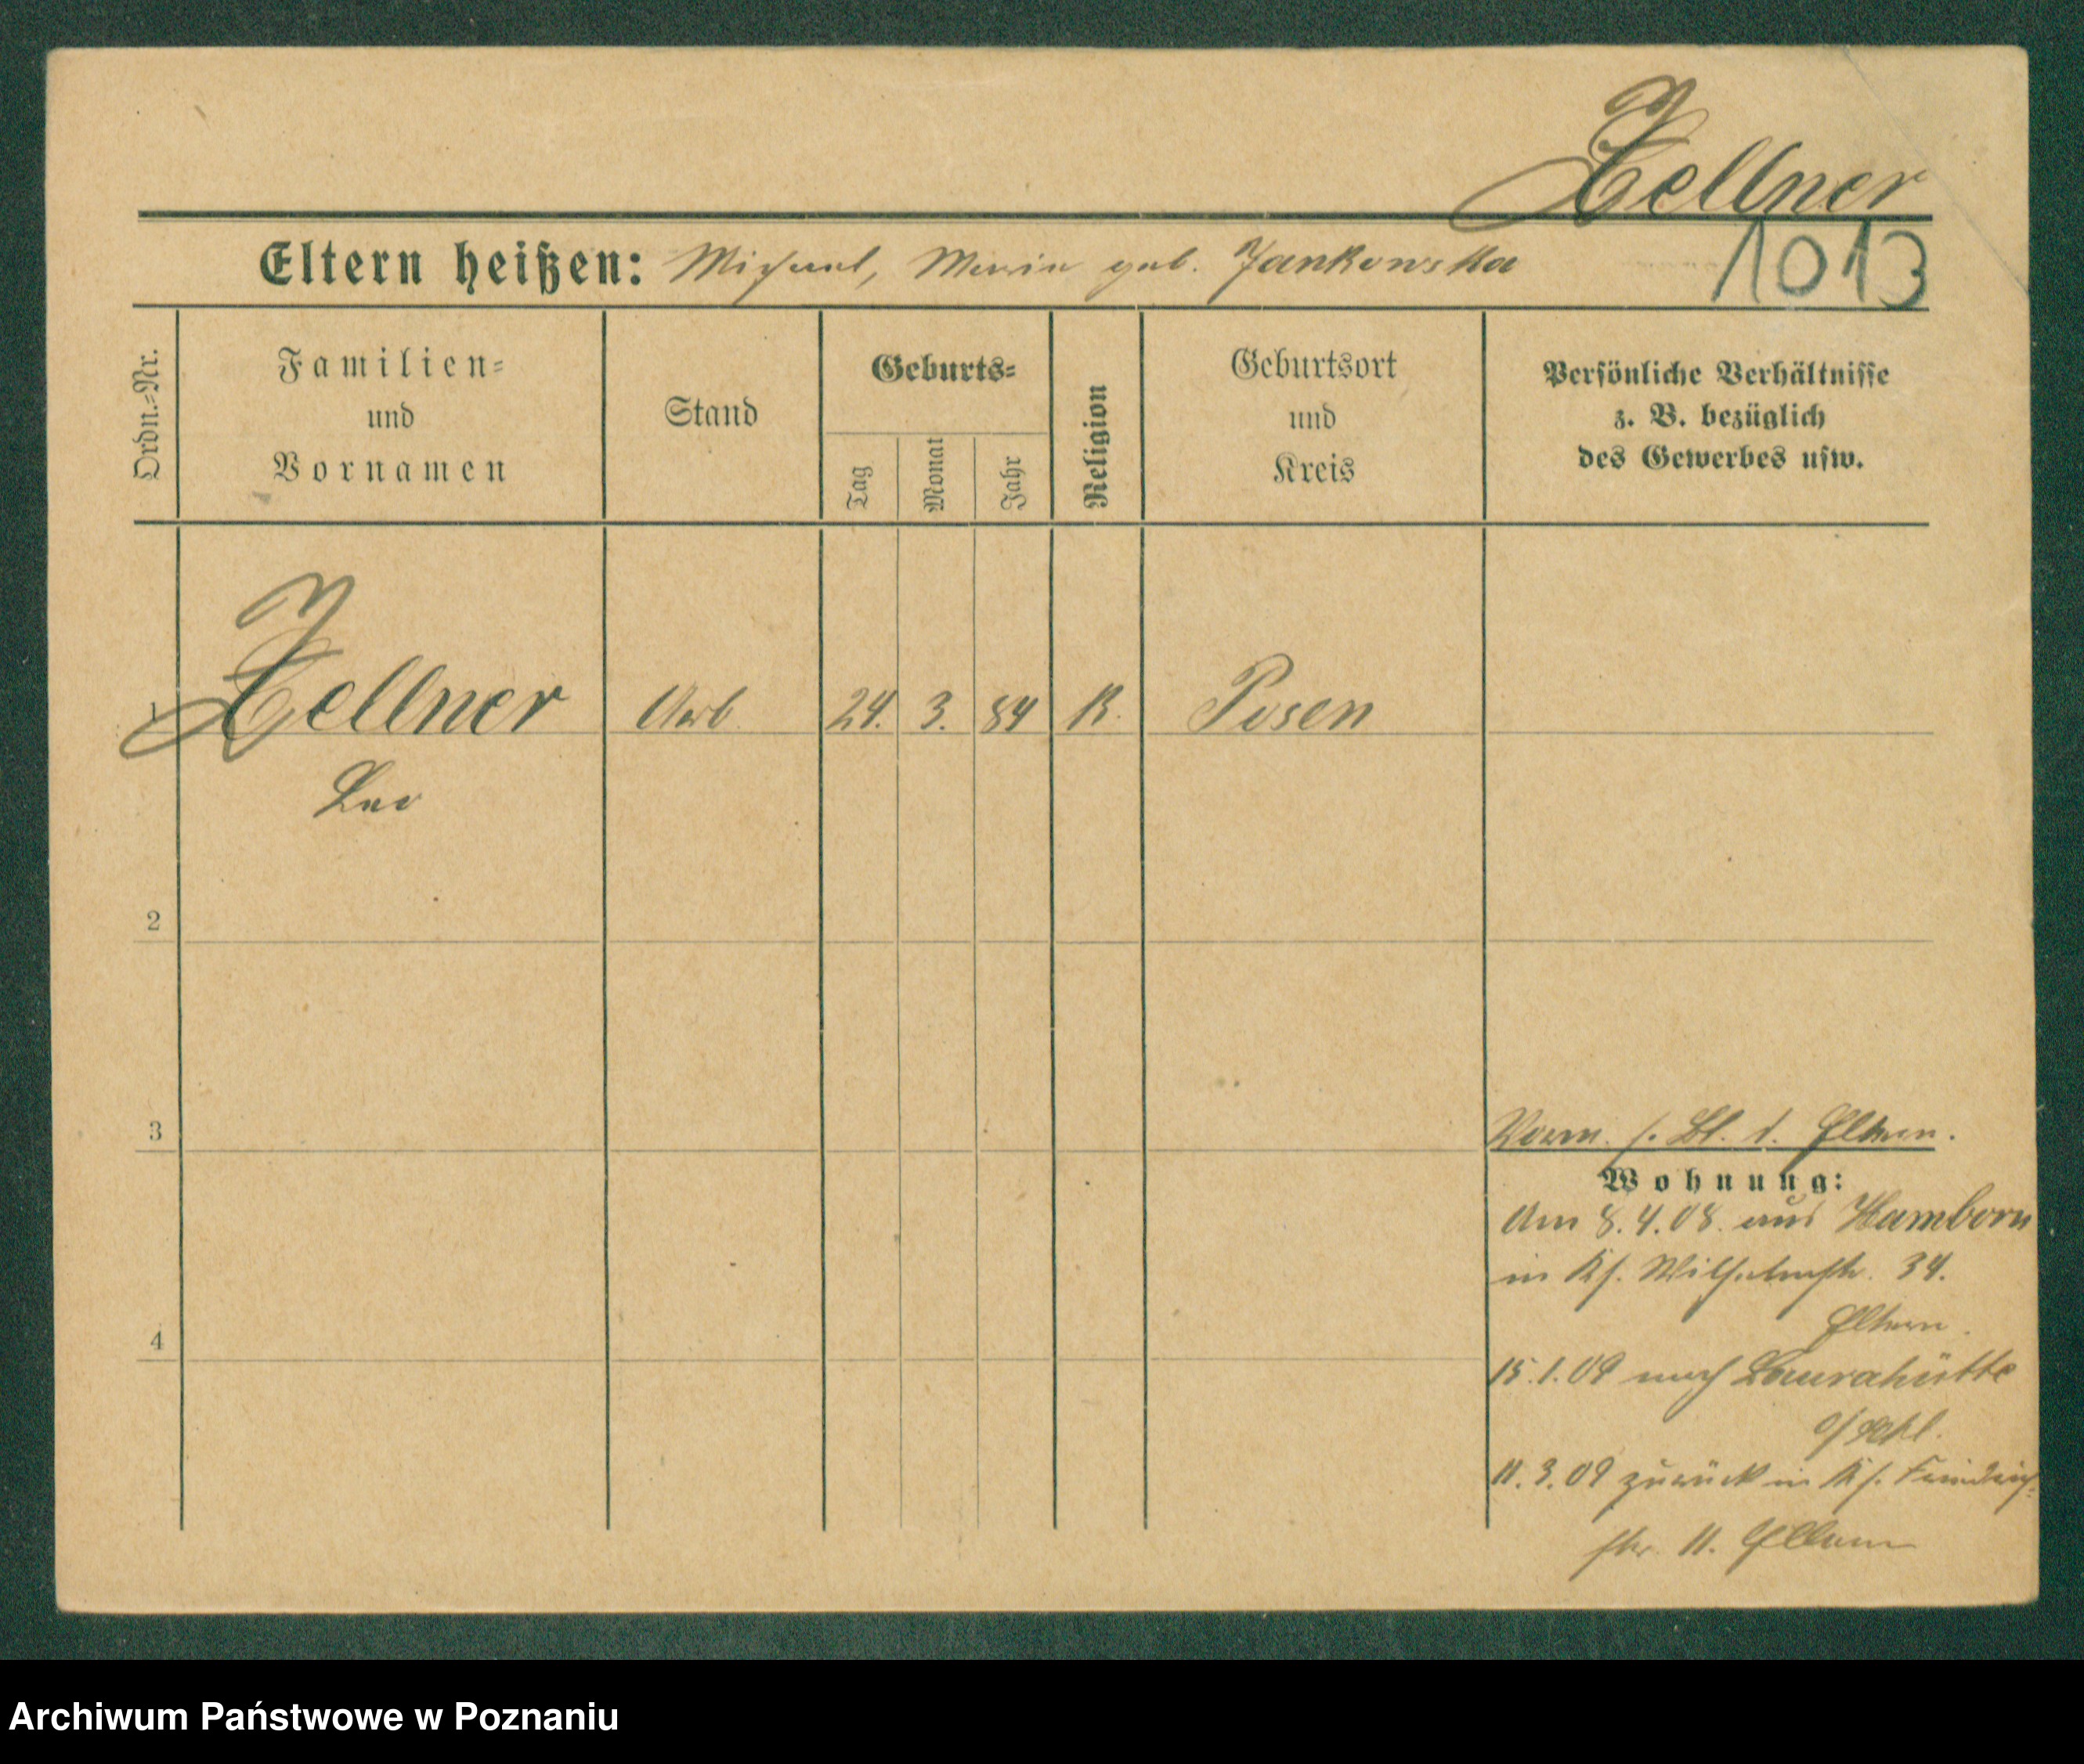 Zellner
Eltern heißen: Michael, Maria geb. Jankowska
1013
Ordn.-Nr.
Familien-
und
Vornamen
Stand
Geburts-
Tag
Monat
Jahr
Religion
Geburtsort
und
Kreis
Persönliche Verhältnisse
z. B. bezüglich
des Gewerbes usw.
1 Zellner Arb. 24. 3. 84 K. Posen
Leo
2
3
Vorm. s. Bl. d. Eltern.
Wohnung:
Am 8.4.08. aus Hamborn
in Kf. Wilhelmstr. 34.
Eltern.
4
15.1.09 nach Laurahütte
O/Schl.
11.3.09 zurück in Kf. Friedrich-
str. 11. Eltern
Archiwum Państwowe w Poznaniu